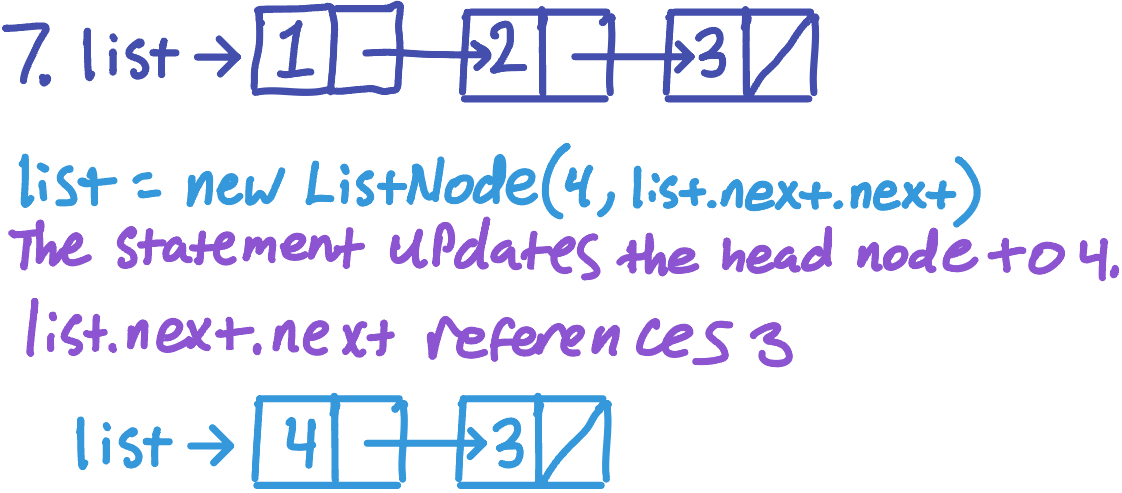 7. list → 1 → 2 → 3
list = new ListNode(4, list.next.next)
The statement updates the head node to 4.
list.next.next references 3
list → 4 → 3